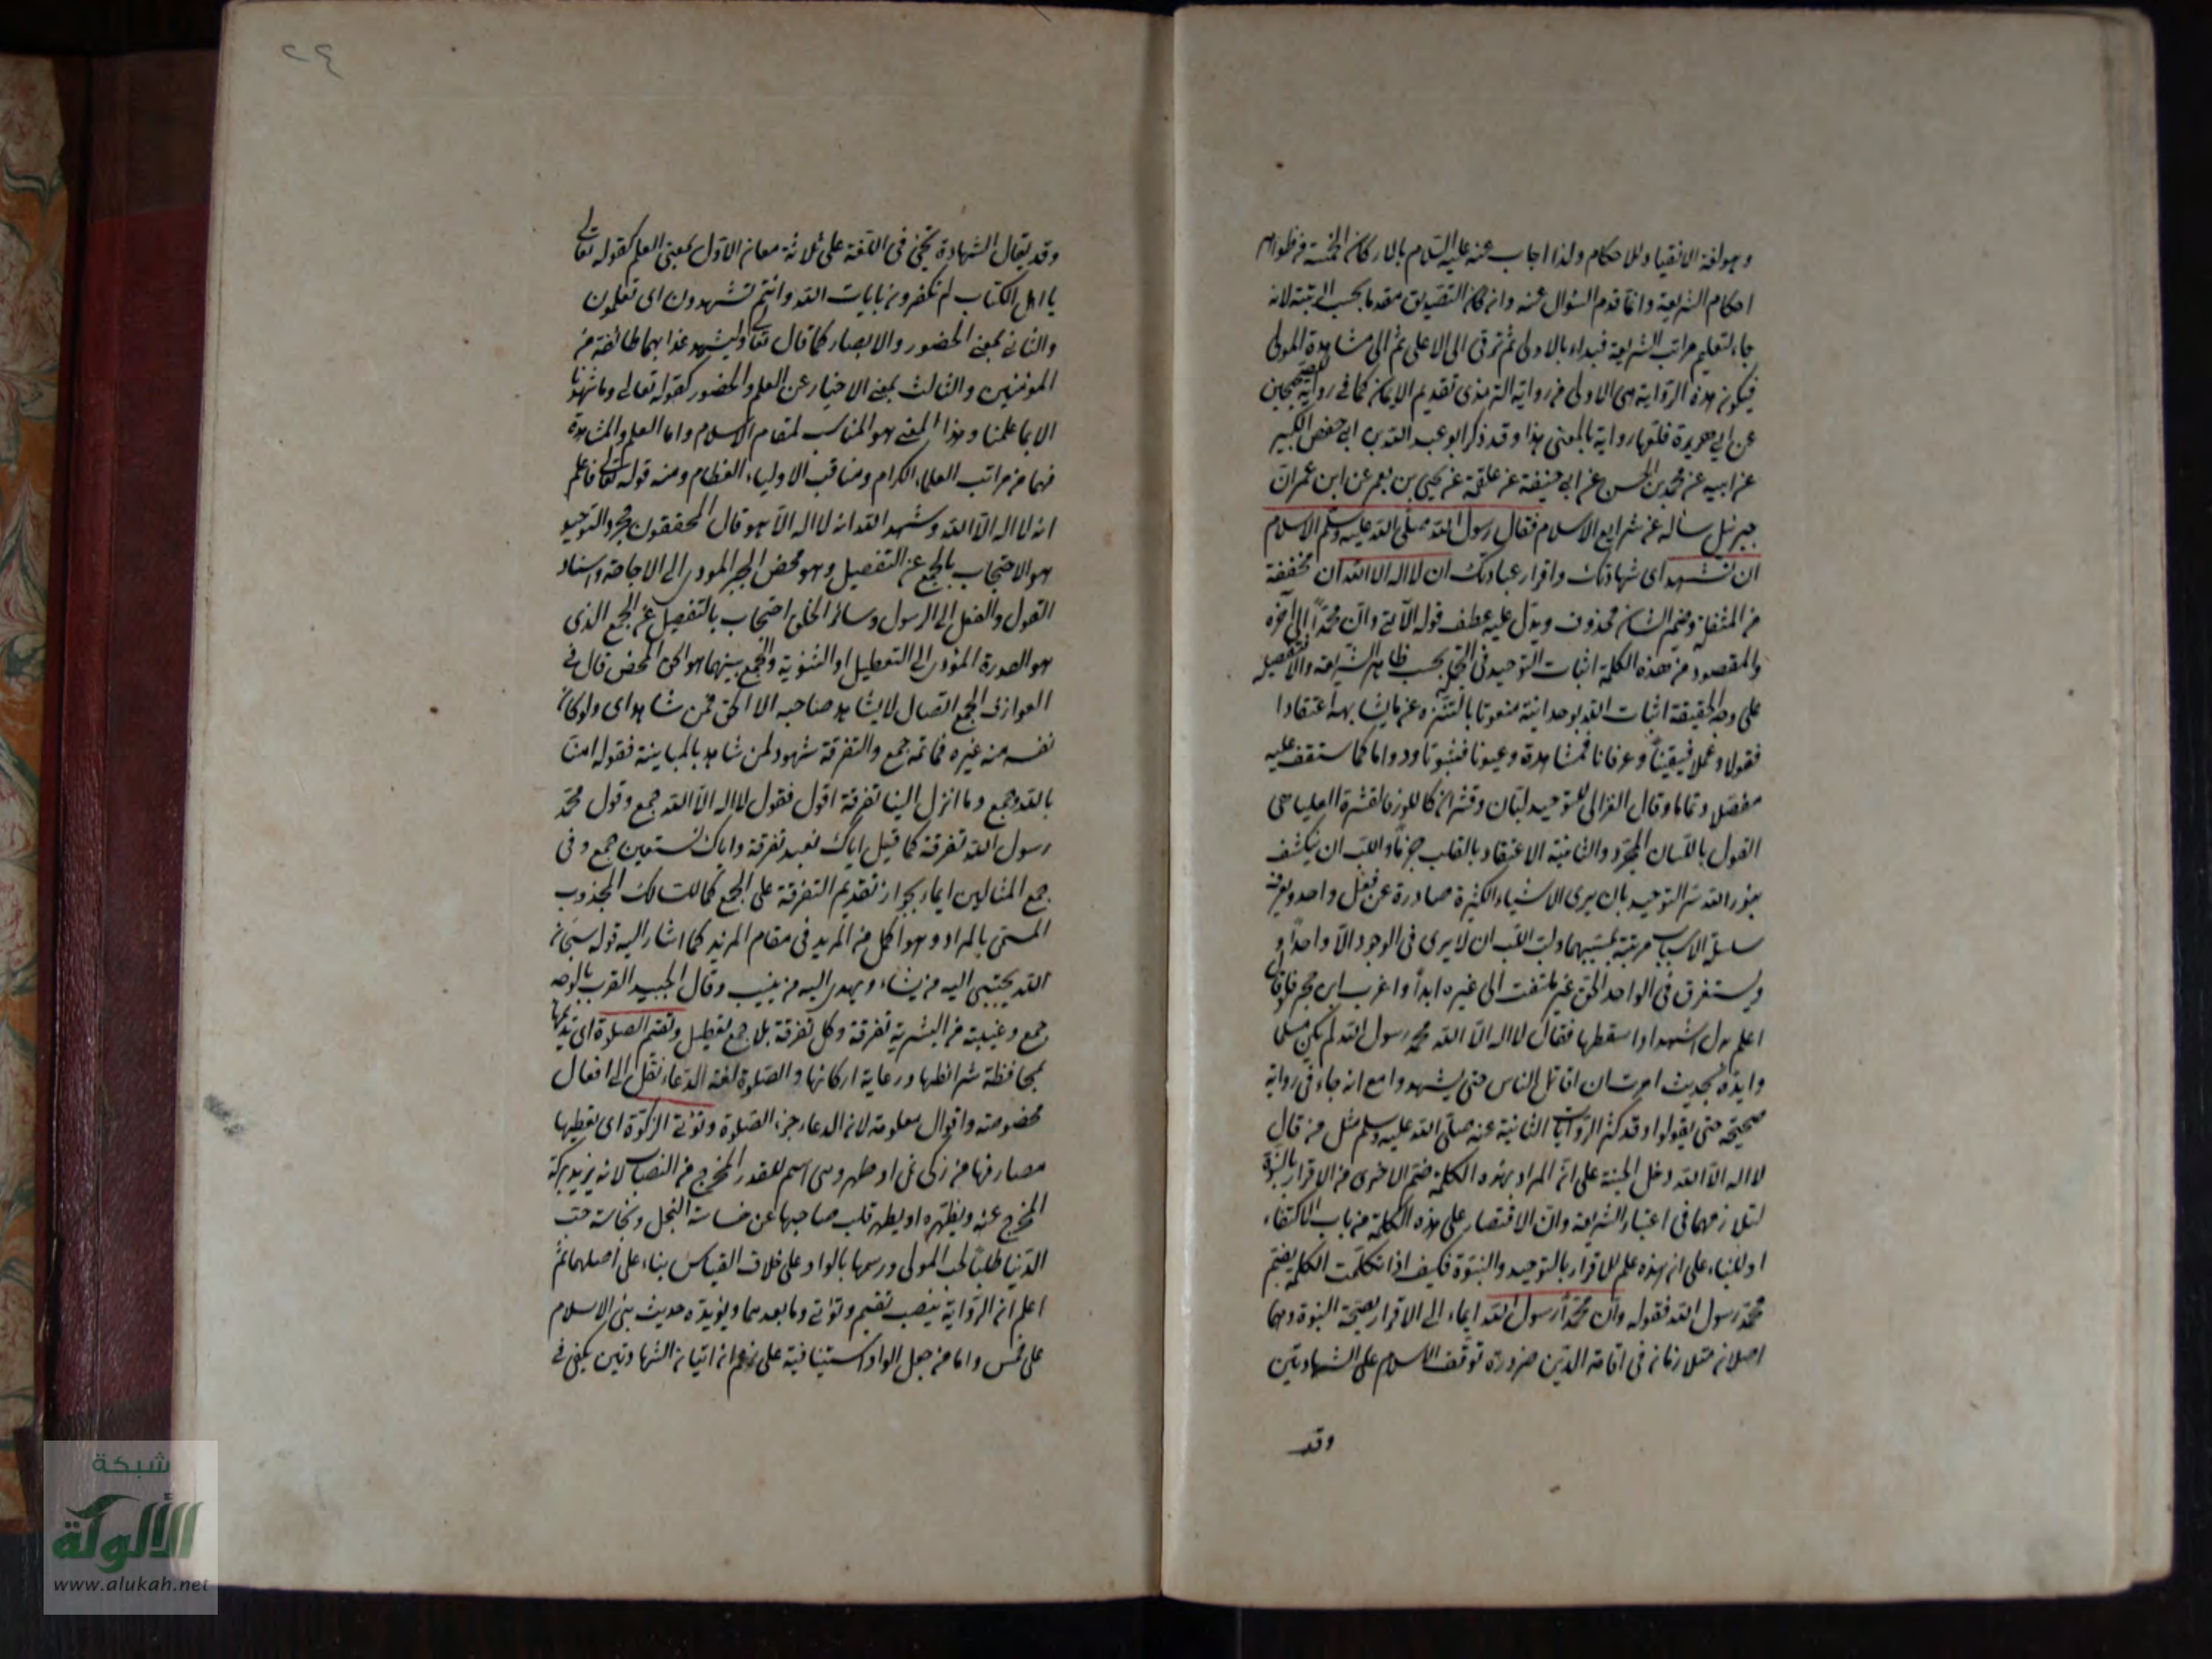 وهو لغة الانقياد للاحكام ولذا اجاب عنه عليه السلام بالاركان الخمسة من ظواهر
احكام الشريعة وانما قدم السؤال عنه وان كان التصديق مقدما بحسب الرتبة لانه
جاء لتعليم مراتب الشريعة فبداء بالادنى ثم ترقى الى الاعلى ثم الى مشاهدة المولى
فيكون هذه الرواية هي الاولى من رواية الترمذى تقديم الايمان كما في رواية الصحيحين
عن ابي هريرة فلعلها رواية بالمعنى هذا وقد ذكر ابو عبد الله بن ابي حفص الكبير
عن ابيه عن محمد بن الحسن عن ابي حنيفة عن علقمة عن يحيى بن يعمر عن ابن عمر ان
جبرئيل سأله عن شرايع الاسلام فقال رسول الله صلى الله عليه وسلم الاسلام
ان تشهد اى شهادتك واقرار عبادتك ان لا اله الا الله ان مخففة
من المثقلة وضمير الشان محذوف ويدل عليه عطف قوله الآتى وان محمدا الى آخره
والمقصود من هذه الكلمة اثبات التوحيد فى بحسب ظاهر الشريعة والا
على وجه الحقيقة اثبات الله بوحدانية منعوتا بالتنزه عن ما يشابهه اعتقادا
فقولا وعملا فيقينا وعرفانا فمشاهدة وعيونا فثبوتا ودواما كما ستقف عليه
مفصلا وتماما وقال الغزالى للتوحيد لبان وقشران كاللوز فالقشرة العليا هى
القول باللسان المجرد والثانية الاعتقاد بالقلب جزما واللب ان ينكشف
بنور الله سر التوحيد بان يرى الاشياء الكثيرة صادرة عن فعل واحد ويعرف
سلسلة الاسباب مرتبة بمسبباتها ولب اللب ان لا يرى فى الوجود الا واحدا و
ويستغرق فى الواحد الحق غير ملتفت الى غيره ابدا واغرب ابن حجر
اعلم بدل اشهد او اسقطها فقال لا اله الا الله محمد رسول الله لم يكن مسلما
وايده بحديث امرت ان اقاتل الناس حتى يشهدوا مع انه جاء فى رواية
صحيحة حتى يقولوا وقد كثر الروايات الثابتة عنه صلى الله عليه وسلم مثل من قال
لا اله الا الله دخل الجنة على ان المراد بهذه الكلمة ضم الاخرى من الاقرار بالنبوة
لتلازمهما فى اعتبار الشريعة وان الاقتصار على هذه الكلمة من باب الاكتفاء
او للبناء على ان هذه علم للاقرار بالتوحيد والنبوة فكيف اذا تكلمت الكلمة بضم
محمد رسول الله فقوله وان محمدا رسول الله ايماء الى الاقرار بصحة النبوة وهما
اصلان متلازمان فى اقامة الدين ضرورة توقف الاسلام على الشهادتين
وقد
٢٤
وقد يقال الشهادة تجئ فى اللغة على ثلاثة معان الاول بمعنى العلم كقوله تعالى
يا اهل الكتاب لم تكفرون بايات الله وانتم تشهدون اى تعلمون
والثانى بمعنى الحضور والابصار كما قال تعالى وليشهد عذابهما طائفة من
المؤمنين والثالث بمعنى الاخبار عن العلم والحضور كقوله تعالى وما شهدنا
الا بما علمنا وهذا المعنى هو المناسب لمقام الاسلام واما العلم والمشاهدة
فهما من مراتب العلماء الكرام ومناقب الاولياء العظام ومنه قوله تعالى فاعلم
انه لا اله الا الله وشهد الله انه لا اله الا هو قال المحققون مجرد التوحيد
هو الاحتجاب بالجمع عن التفصيل وهو محض الجبر المودى الى الاباحة واسناد
القول والفعل الى الرسول وسائر الخلق احتجاب بالتفصيل عن الجمع الذى
هو المؤدى الى التعطيل او الثنوية والجمع بينهما هو الحق المحض قال فى
العوارف الجمع اتصال لا يشاهد صاحبه الا الحق فمن شاهد اى ولو كان
نفسه من غيره فما ثمه جمع والتفرقة شهود لمن شاهد بالمباينة فقوله امنا
بالله جمع وما انزل الينا تفرقة اقول فقول لا اله الا الله جمع وقول محمد
رسول الله تفرقة كما قيل اياك نعبد تفرقة واياك نستعين جمع وفى
جمع المثالين ايماء بجواز تقديم التفرقة على الجمع كالسالك المجذوب
المسمى بالمراد وهو اكمل من المريد فى مقام المزيد كما اشار اليه قوله سبحانه
الله يجتبى اليه من يشاء ويهدى اليه من ينيب وقال الجنيد القرب بالوجد
جمع وغيبته فى البشرية تفرقة وكل تفرقة بلا جمع تعطيل وتقيم الصلوة اى
بمحافظة شرائطها ورعاية اركانها والصلوة لغة الدعاء نقل الى افعال
مخصوصة واقوال معلومة لان الدعاء جزء الصلوة وتؤتى الزكوة اى تعطيها
مصارفها من زكى نمى او طهر وهى اسم للقدر المخرج من النصاب لانه يزيد بركة
المخرج عنه ويطهره او يطهر قلب صاحبها عن خساسة البخل ونجاسة حب
الدنيا طلبا لحب المولى ورسمها بالواو على خلاف القياس بناء على اصلها ثم
اعلم ان الرواية بنصب تقيم وتؤتى وما بعدهما ويؤيده حديث بنى الاسلام
على خمس واما من جعل الواو استينافية على زعم ان اتيان الشهادتين يكفى فى
شبكة
الألوكة
www.alukah.net